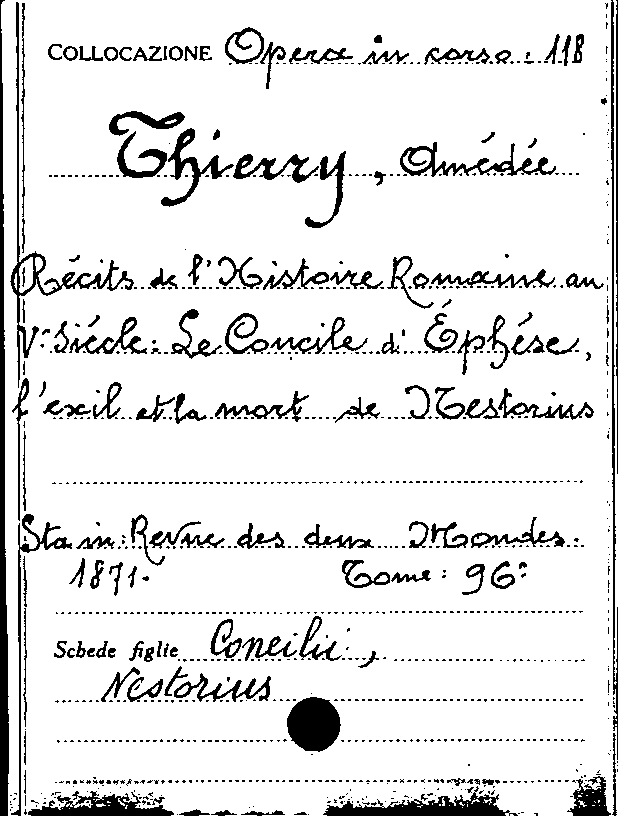 COLLOCAZIONE Opera in corso: 118
Thierry, Amédée
Récits de l'Histoire Romaine au
Ve Siécle: Le Concile d'Éphése,
l'exil et la mort de Nestorius
Sta in: Revue des deux Mondes.
1871. Tome: 96°
Schede figlie Concilii,
Nestorius